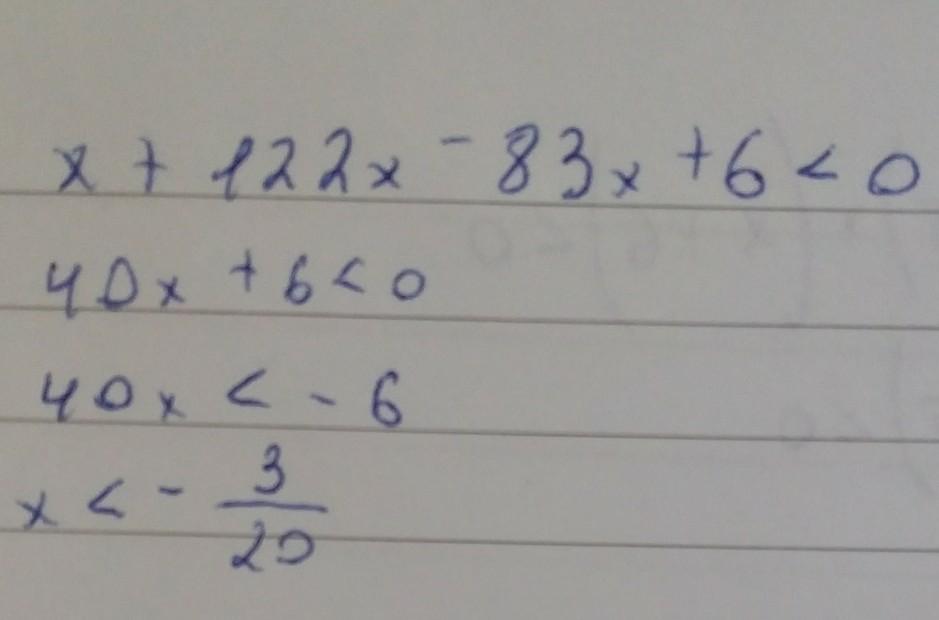 x + 122x - 83x + 6 < 0
40x + 6 < 0
40x < - 6
x < - 3/20